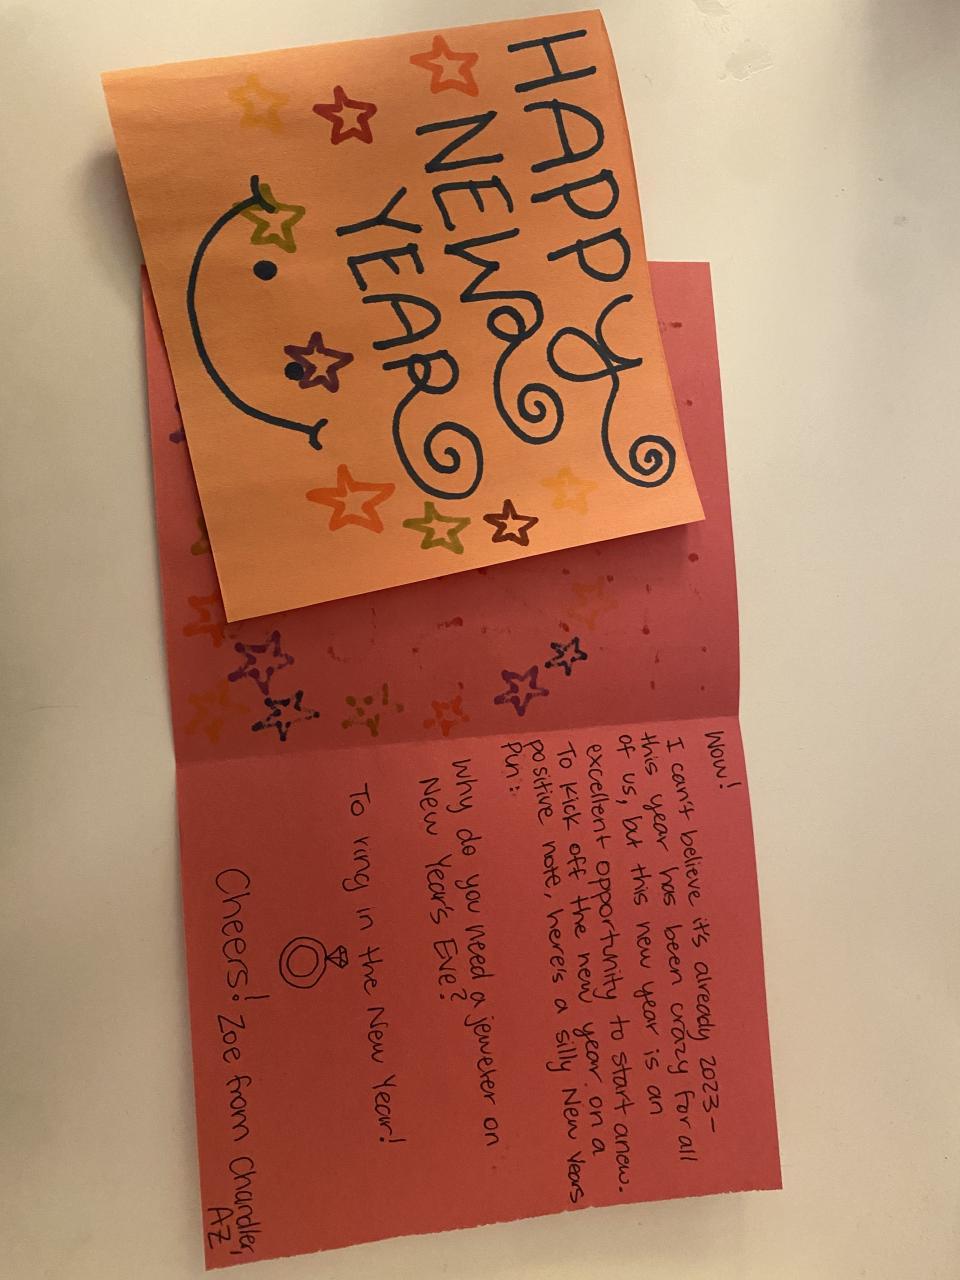 HAPPY
NEW
YEAR
Wow!
I can't believe it's already 2023-
this year has been crazy for all
of us, but this new year is an
excellent opportunity to start anew.
To kick off the new year on a
positive note, here's a silly New Years
Pun:
Why do you need a jeweler on
New Year's Eve?
To ring in the New Year!
Cheers! Zoe from Chandler,
AZ